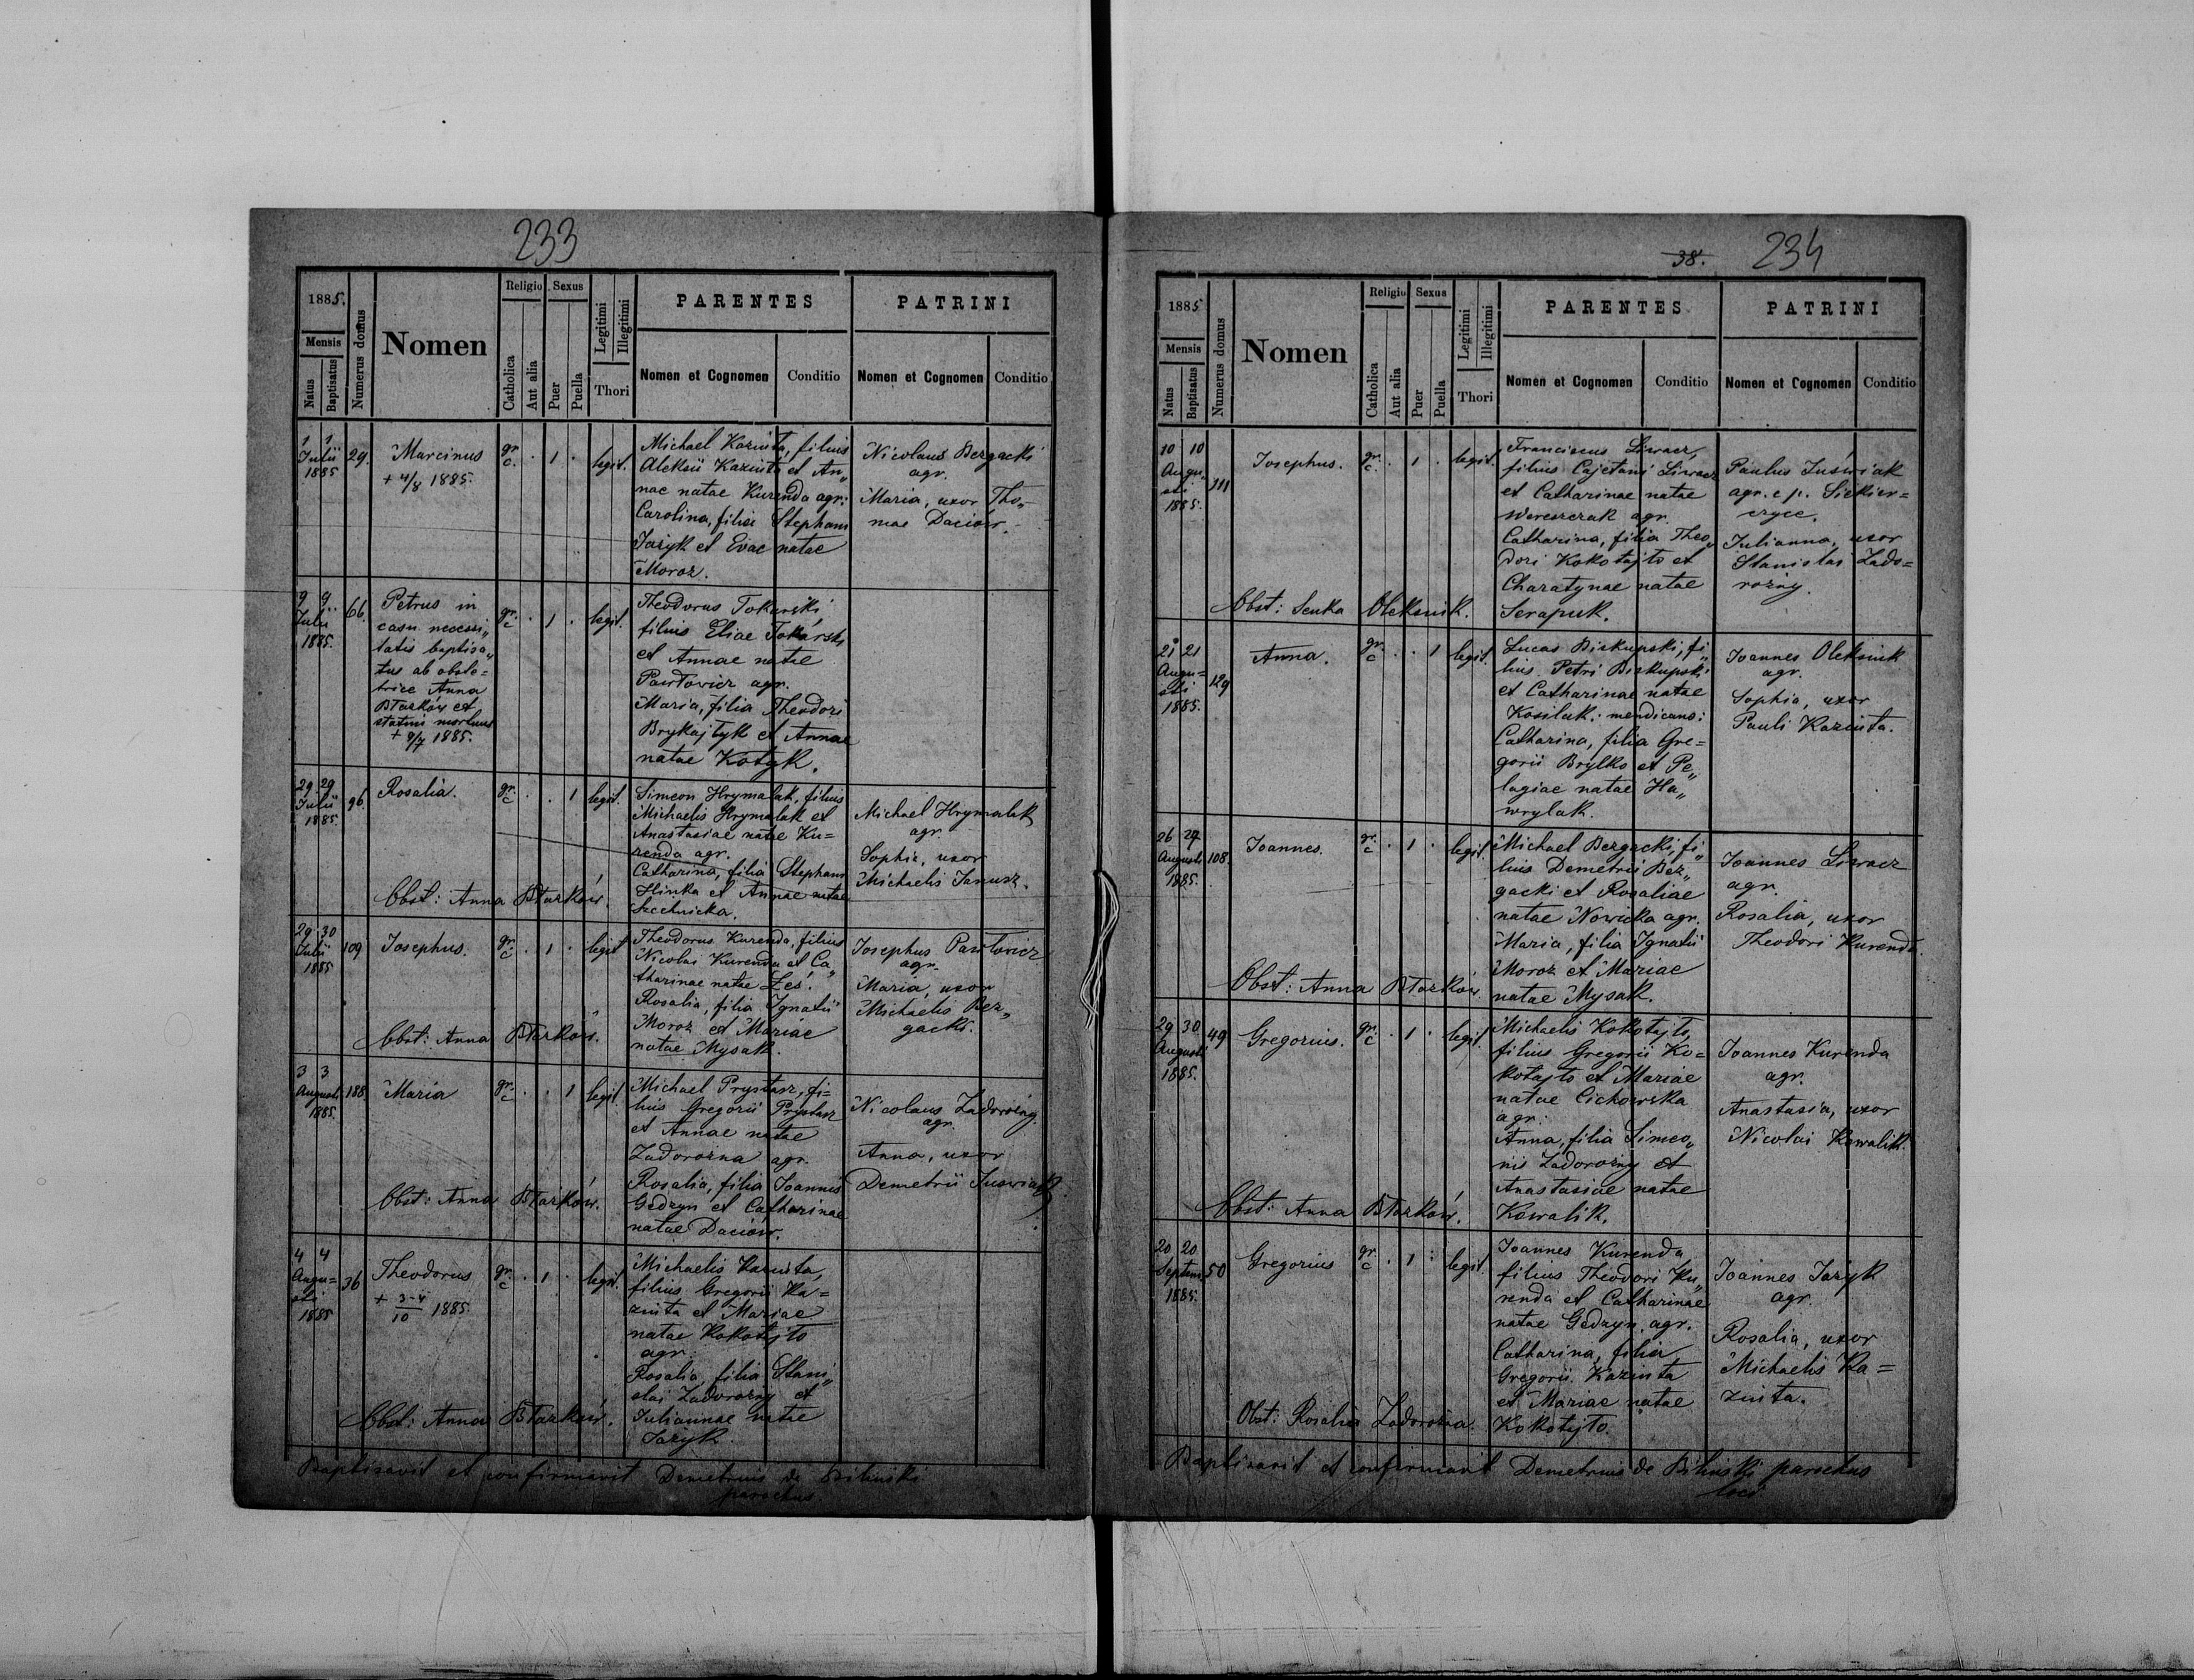 233
1885.
Mensis
Natus
Baptisatus
Numerus domus
Nomen
Religio
Catholica
Aut alia
Sexus
Puer
Puella
Legitimi
Illegitimi
Thori
PARENTES
Nomen et Cognomen
Conditio
PATRINI
Nomen et Cognomen
Conditio
1 1
Julii
1885
29.
Marcinus
+ 4/8 1885.
gr.
c.
. 1 .
legit.
Michael Kazuita, filius
Aleksii Kazuita et An„
nae natae Kurenda agr:
Carolina, filia Stephani
Jazyk et Evae natae
Moroz.
Nicolaus Bezgacki
agr.
Maria, uxor Tho„
mae Daciow.
9 9
Julii
1885.
66.
Petrus in
casu necessi„
tatis baptisa„
tus ab obste=
trice Anna
Błażków et
statim mortuus
+ 9/7 1885.
gr.
c
. 1 .
legit.
Theodorus Tokarski,
filius Eliae Tokarski
et Annae natae
Pawłowicz agr.
Maria, filia Theodori
Brykajłyk et Annae
natae Kotyk.
29 29
Julii
1885.
96.
Rosalia.
gr.
c
. . 1
legit.
Simeon Hrymalak, filius
Michaelis Hrymalak et
Anastasiae natae Ku=
renda agr.
Catharina, filia Stephani
Hlinka et Annae natae
Szechnicka.
Michael Hrymalak
agr.
Sophia, uxor
Michaelis Janusz.
Obst: Anna Błażków.
29 30
Julii
1885
109
Josephus.
gr.
c
. 1 .
legit
Theodorus Kurenda, filius
Nicolai Kurenda et Ca„
tharinae natae Łes.
Rosalia, filia Ignatii
Moroz et Mariae
natae Mysak.
Josephus Pawłowicz
agr.
Maria, uxor
Michaelis Bez„
gacki.
Obst: Anna Błażków.
3 3
Augusti
1885.
188.
Maria
gr.
c
. . 1
legit.
Michael Prystasz, fi=
lius Gregorii Prystasz
et Annae natae
Zadorozna agr.
Rosalia, filia Joannis
Gedzyn et Catharinae
natae Daciow.
Nicolaus Zadorozny
agr.
Anna, uxor
Demetrii Juswiak
Obst: Anna Błażków.
4 4
Augu=
sti
1885
36
Theodorus
+ 3-4/10 1885.
gr.
c
. 1 .
legit.
Michaelis Kazuita,
filius Gregorii Ka=
zuita et Mariae
natae Kokotajto
agr.
Rosalia, filia Stani„
slai Zadorozny et
Juliannae natae
Jazyk.
Obst: Anna Błażków.
Baptisavit et confirmavit Demetrius de Biliński
parochus
38. 234
1885
Mensis
Natus
Baptisatus
Numerus domus
Nomen
Religio
Catholica
Aut alia
Sexus
Puer
Puella
Legitimi
Illegitimi
Thori
PARENTES
Nomen et Cognomen
Conditio
PATRINI
Nomen et Cognomen
Conditio
10 10
Augu=
sti
1885.
111
Josephus.
gr.
c.
. 1 .
legit.
Franciscus Siwacz,
filius Cajetani Siwacz
et Catharinae natae
Wereszczak agr.
Catharina, filia Theo„
dori Kokotajto et
Charatynae natae
Serapuk.
Paulus Juświak
agr. e p. Siekier=
czyce.
Julianna, uxor
Stanislai Zado=
rożny.
Obst: Senka Oleksiuk.
21 21
Augu=
sti
1885.
129
Anna.
gr.
c
. . 1
legit.
Lucas Biskupski, fi„
lius Petri Biskupski
et Catharinae natae
Kosilak. mendicans:
Catharina, filia Gre=
gorii Brylko et Pe„
lagiae natae Ha„
wrylak.
Joannes Oleksiuk
agr.
Sophia, uxor
Pauli Kazuita.
26 27
Augusti
1885.
108.
Joannes.
gr.
c
. 1 .
legit.
Michael Bezgacki, fi„
lius Demetrii Bez„
gacki et Rosaliae
natae Nowicka agr.
Maria, filia Ignatii
Moroz et Mariae
natae Mysak.
Joannes Siwacz
agr.
Rosalia, uxor
Theodori Kurenda.
Obst: Anna Błażków.
29 30
Augusti
1885.
49
Gregorius.
gr.
c
. 1 .
legit.
Michaelis Kokotajto,
filius Gregorii Ko=
kotajto et Mariae
natae Cichowska
agr:
Anna, filia Simeo„
nis Zadorożny et
Anastasiae natae
Kowalik.
Joannes Kurenda
agr.
Anastasia, uxor
Nicolai Kowalik.
Obst: Anna Błażków.
20 20
Septem
1885.
50
Gregorius
gr.
c
. 1 .
legit.
Joannes Kurenda
filius Theodori Ku„
renda et Catharinae
natae Gedzyn, agr.
Catharina, filia
Gregorii Kazuita
et Mariae natae
Kokotajto.
Joannes Jazyk
agr.
Rosalia, uxor
Michaelis Ka=
zuita.
Obst: Rosalia Zadorożna.
Baptisavit et confirmavit Demetrius de Biliński parochus
loci.